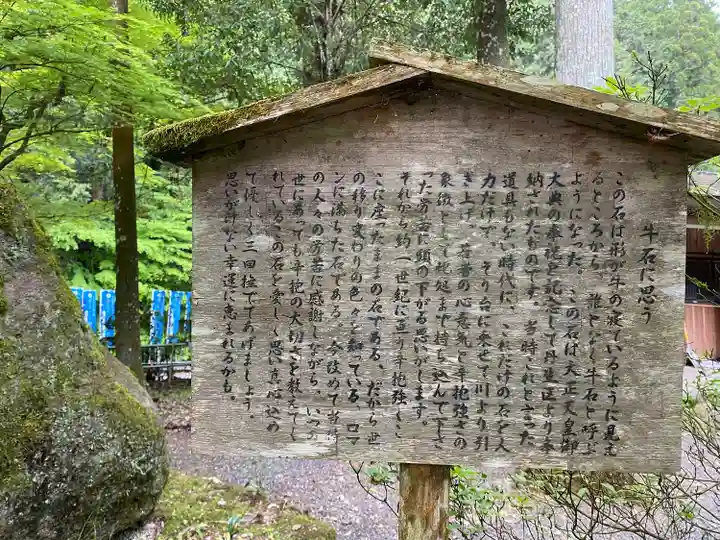 牛石に思う
この石は形が牛の寝ているように見え
るところから、誰ともなく牛石と呼ぶ
ようになった。この石は大正天皇御
大典の奉祝を記念して丹生区より奉
納されたものです。当時これと言った
道具もない時代に、これだけの石を人
力だけで、そり台に乗せて川より引
き上げ、若者の心意気と辛抱強さの
象徴として境延まで持ち込んで下さ
った労苦に頭の下がる思いがします。
それから約一世紀に近り辛抱強くこ
こに座ったままの石である、だから世
の移り変わりの色々を知っている、ロマ
ンに満ちた石である。今改めて当時
の人々の労苦に感謝しながら、いつの
世にあっても辛抱の大切さを教えてく
れているこの石を愛しく思い真心込め
て優しく三回撫でてあげましょう。
思いがけない幸運に恵まれるかも。